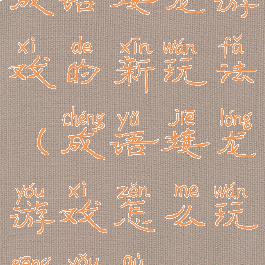 成语接龙游
xì de xīn wán fǎ
戏的新玩法
chéng yǔ jiē lóng
(成语接龙
yóu xì zěn me wán
游戏怎么玩
yǒu qù